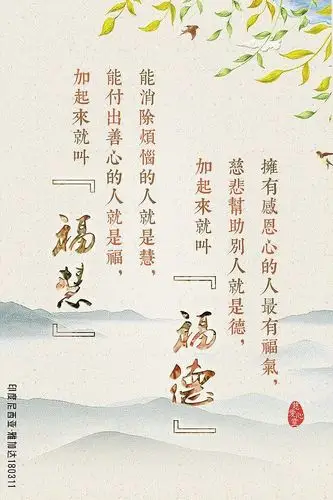 擁有感恩心的人最有福氣，
慈悲幫助別人就是德，
加起來就叫
『福德』
能消除煩惱的人就是慧，
能付出善心的人就是福，
加起來就叫
『福慧』
印度尼西亚·雅加达180311